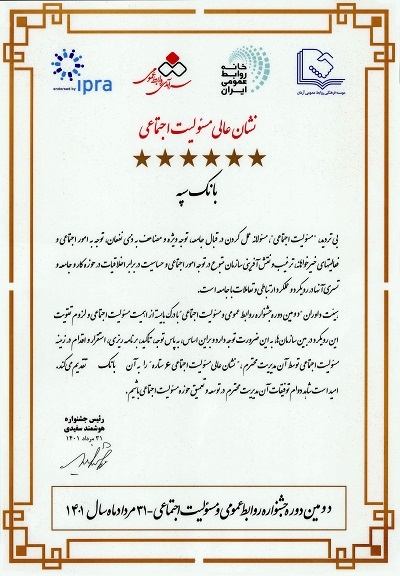 endorsed by ipra
خانه
روابط
عمومی
ایران
موسسه فرهنگی روابط عمومی آرمان
نشان عالی مسئولیت اجتماعی
بانک سپه
بی تردید، "مسئولیت اجتماعی"، مسئولانه عمل کردن در قبال جامعه، توجه ویژه و مضاعف به ذی نفعان، توجه به امور اجتماعی و
فعالیتهای خیرخواهانه، ترغیب و نقش آفرینی سازمان متبوع در توجه امور اجتماعی و حساسیت در برابر اخلاقیات در حوزه کار و جامعه و
تسری آنها در رویکرد و عملکرد ارتباطی و تعاملات با جامعه است.
هیئت داوران "دومین دوره جشنواره روابط عمومی و مسئولیت اجتماعی" با درک بایسته از اهمیت مسئولیت اجتماعی و لزوم تقویت
این رویکرد در بین سازمان‌ها، به این ضرورت توجه دارد و بر این اساس، به پاس توجه، تأکید، برنامه ریزی، استقرار و اقدام در زمینه
مسئولیت اجتماعی توسط آن مدیریت محترم، "نشان عالی مسئولیت اجتماعی ۶ ستاره" را به آن بانک تقدیم می‌کند.
امید است شاهد دوام توفیقات آن مدیریت محترم در توسعه و تعمیق حوزه مسئولیت اجتماعی باشیم.
رئیس جشنواره
هوشمند سفیدی
۳۱ مرداد ۱۴۰۱
دومین دوره جشنواره روابط عمومی و مسئولیت اجتماعی - ۳۱ مرداد ماه سال ۱۴۰۱